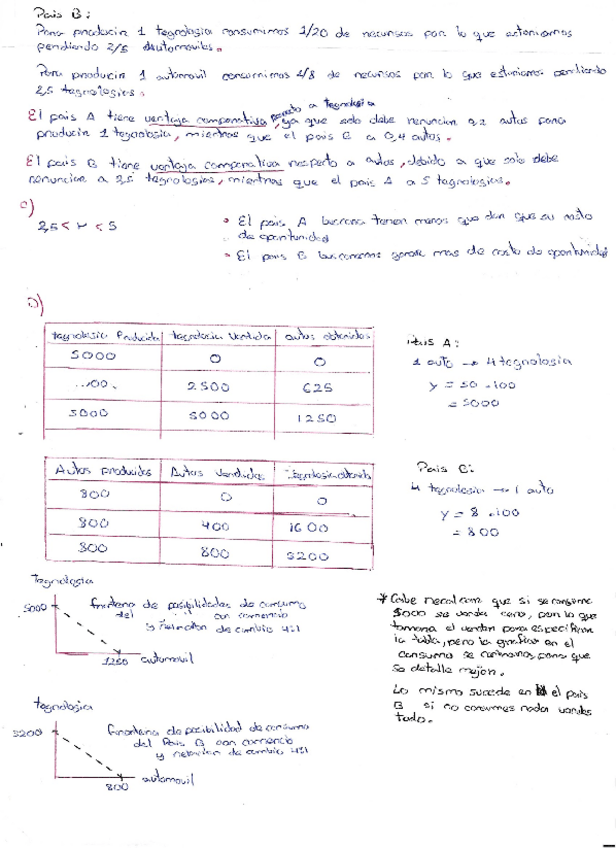 País B:
Para producir 1 tegnología consumimos 1/20 de recursos por lo que estaríamos
perdiendo 2/5 de automoviles.
Para producir 1 automovil consumimos 1/8 de recursos por lo que estaríamos perdiendo
2,5 tegnologías.
El país A tiene ventaja comparativa respecto a tegnología, ya que solo debe renunciar 0,2 autos para
producir 1 tegnología, mientras que el país B a 0,4 autos.
El país B tiene ventaja comparativa respecto a autos, debido a que solo debe
renunciar a 2,5 tegnologías, mientras que el país A a 5 tegnologías.
c)
2,5 < r < 5
• El país A buscara tener menos que dar que su costo
de oportunidad
• El país B buscaremos ganar mas de costo de oportunidad
D)
tegnología Producida tegnología Vendida autos obtenidos
5000 0 0
2500 625
5000 5000 1250
País A:
1 auto → 4 tegnología
y = 50 . 100
= 5000
Autos producidos Autos Vendidos Tegnología obtenida
800 0 0
800 400 1600
800 800 3200
País B:
4 tegnología → 1 auto
y = 8 . 100
= 800
tegnología
5000
frontera de posibilidades de consumo
del con comercio
y relacion de cambio 4:1
1250 automovil
* Cabe recalcar que si se consume
5000 se vende cero, por lo que
la tabla, pero la grafica en el
consumo se para que
se detalle mejor.
Lo mismo sucede en el país
B si no consumes nada vendes
todo.
tegnología
3200
frontera de posibilidad de consumo
del País B con comercio
y relacion de cambio 4:1
automovil
800